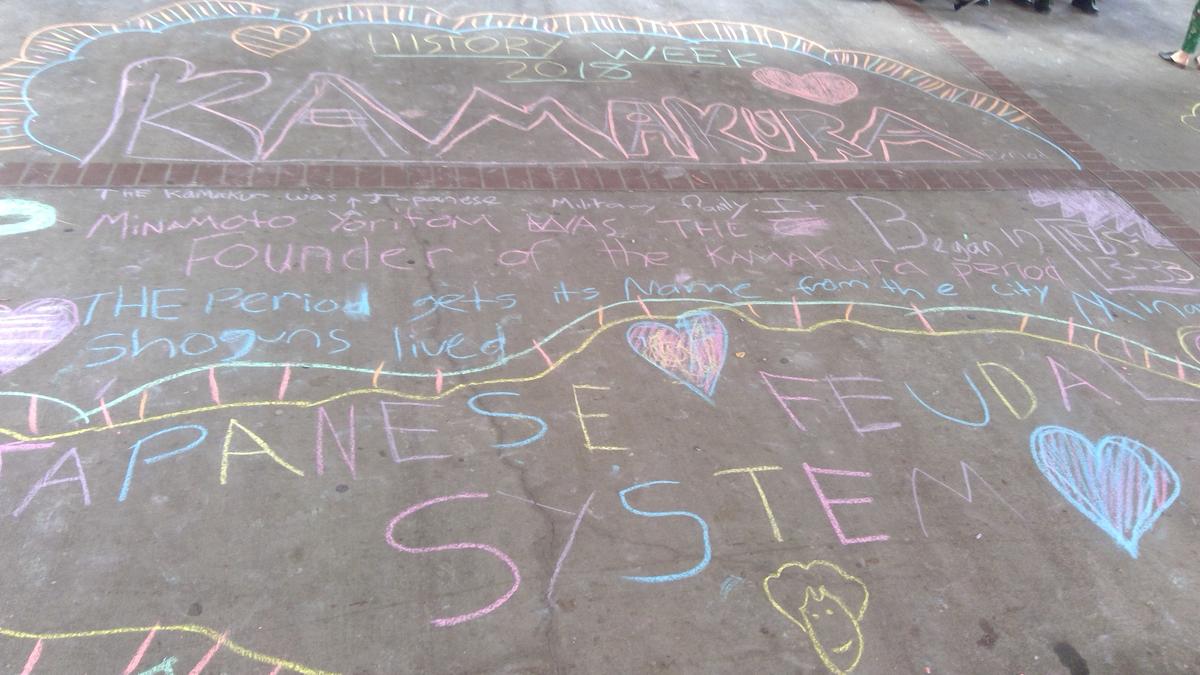 HISTORY WEEK
2018
KAMAKURA
Period
THE Kamakur was A Japanese Military It
MINAMOTO Yoritomo WAS THE
Founder of the KAMAKura period
Began IN
1185-
1333
THE Period gets its Name from the city Mina
shoguns lived
JAPANESE FEUDAL
SYSTEM